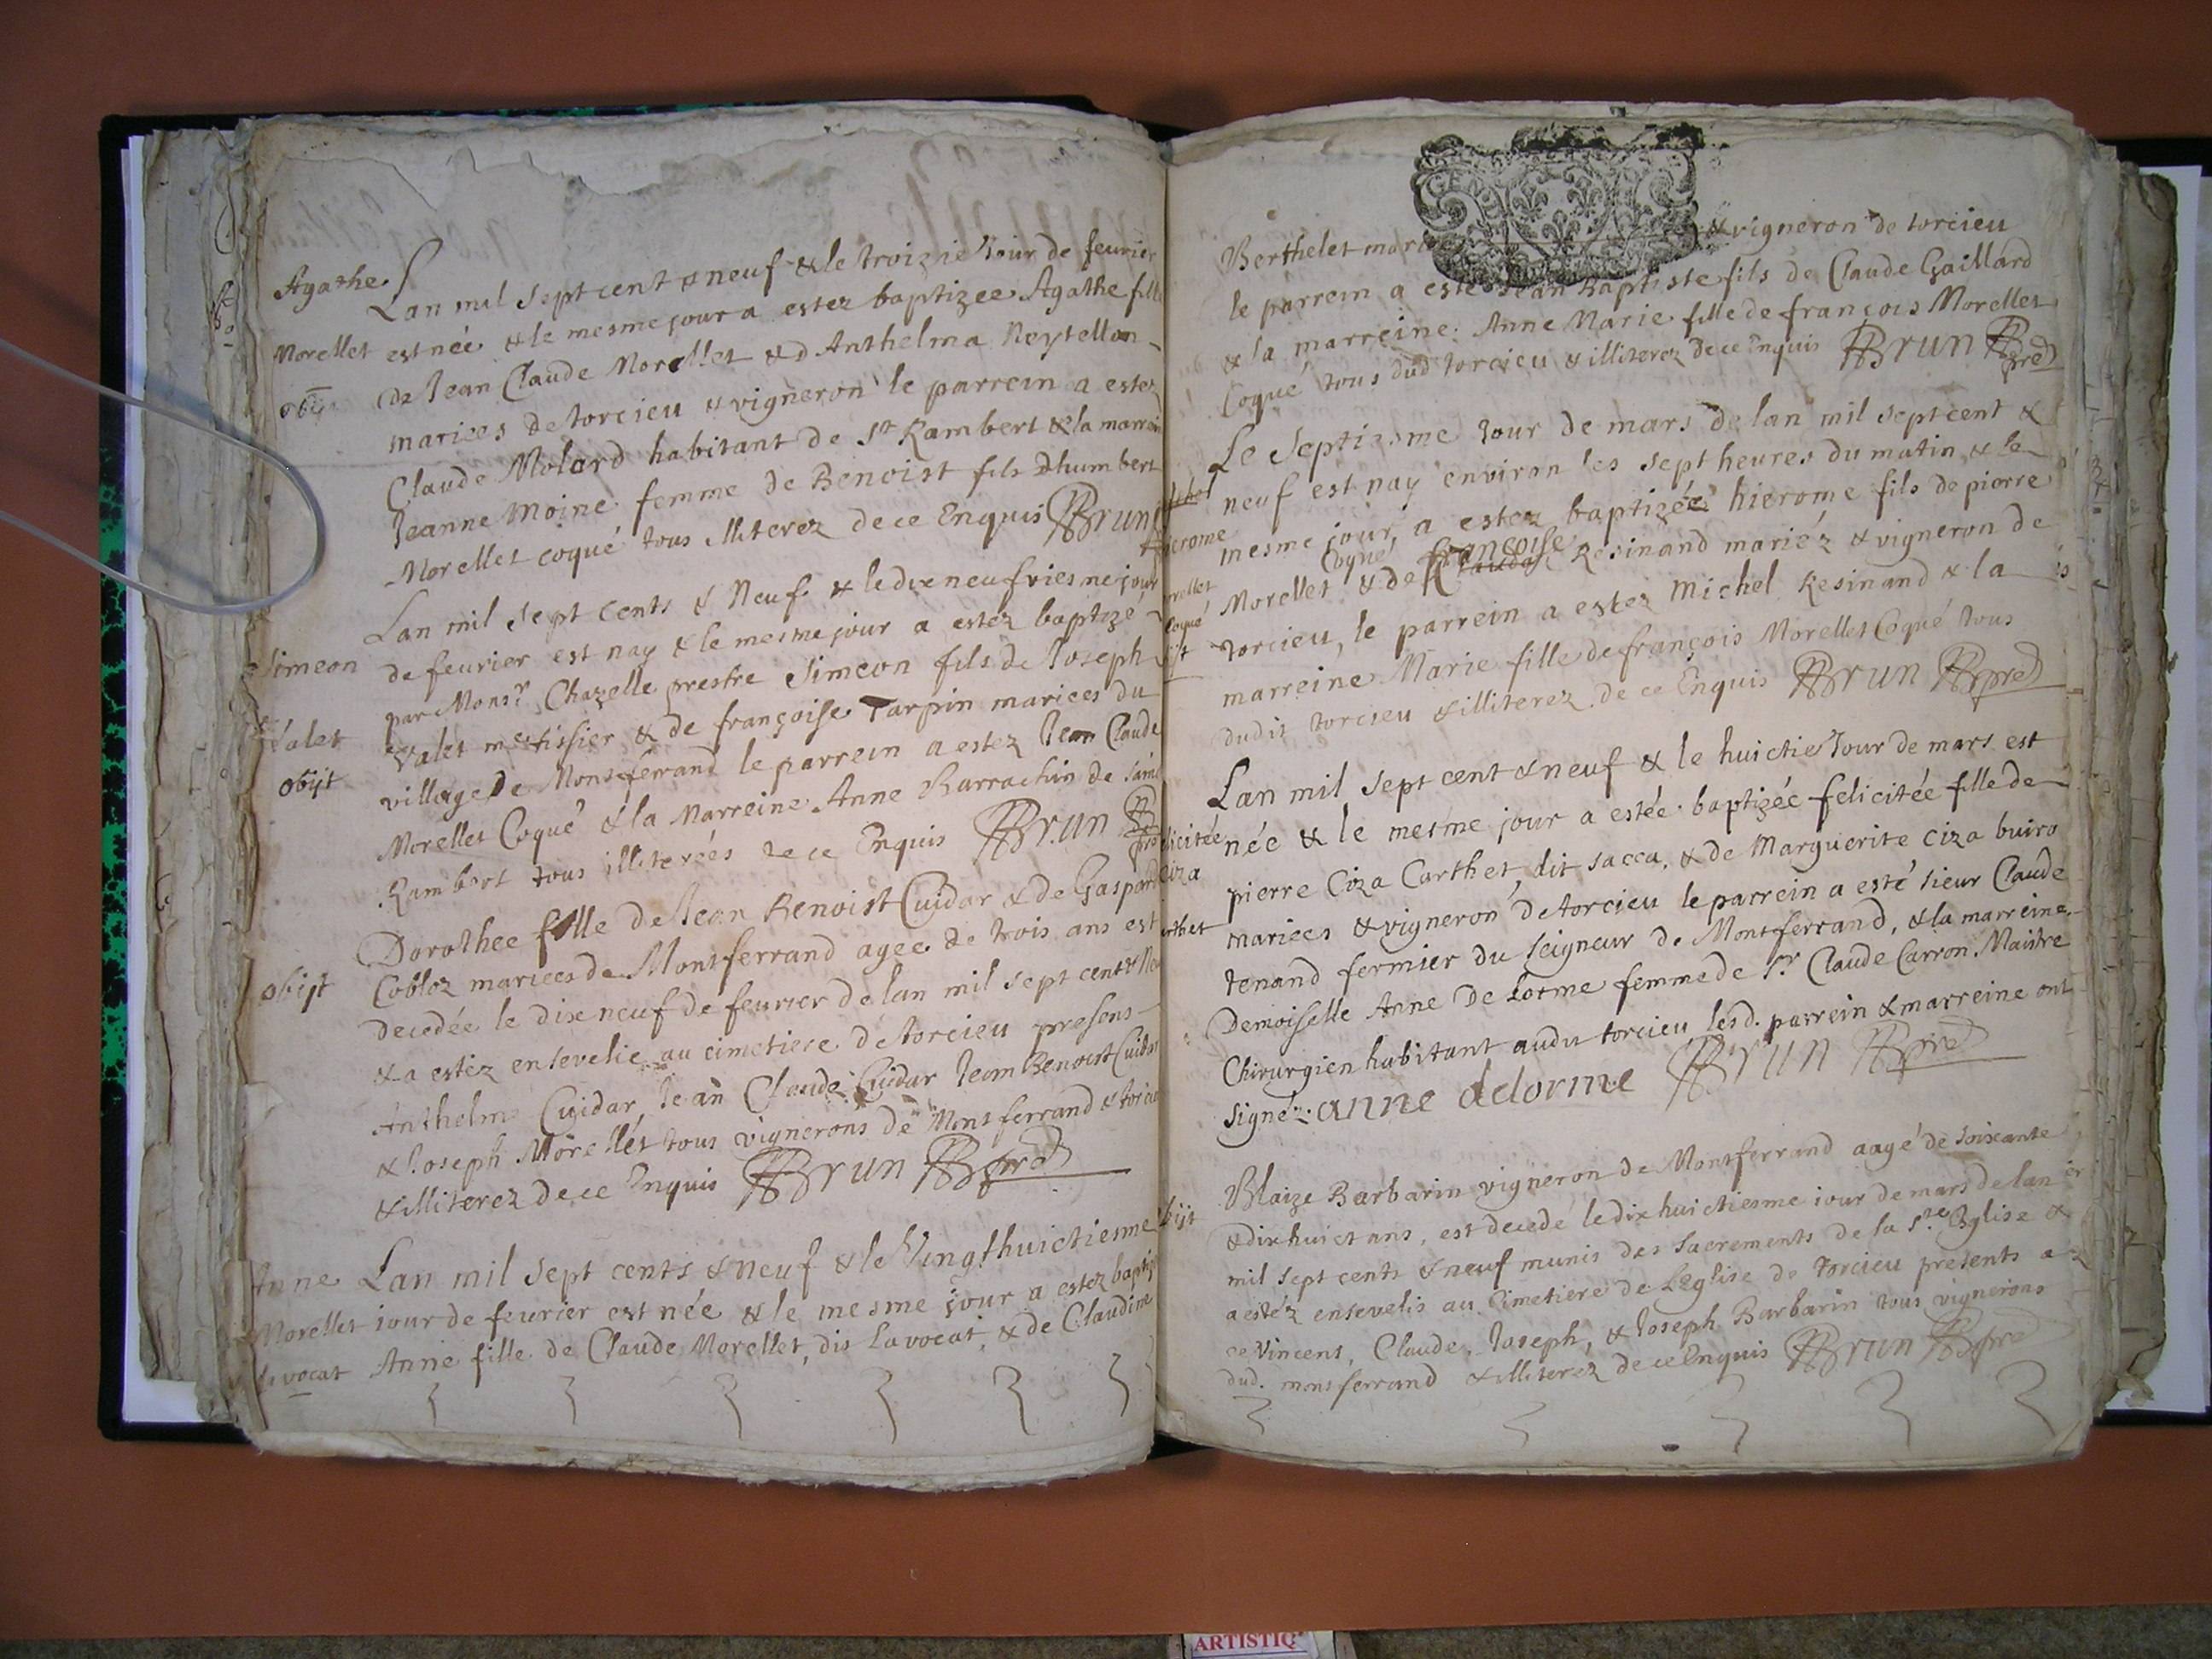 Agathe
Lan mil sept cent & neuf & le troizie Jour de feurier
Morellet est née & le mesme jour a estez baptizee Agathe fille
obijt de Jean Claude Morellet & d Anthelma Reytellon
mariees de torcieu & vigneron le parrein a estez
Claude Molard habitant de St Rambert & la marrein
Jeanne Moine femme de Benoist fils dhumbert
Morellet coqué tous illiterez de ce Enquis Brun
Lan mil sept cents & Neuf & le dixneufviesme jour
Simeon de feurier est nay & le mesme jour a estez baptizé
par Monsr Chazelle prestre Simeon fils de Joseph
Valet Valet mestissier & de françoise Tarpin mariees du
obijt village de Montferrand le parrein a estez Jean Claude
Morellet Coqué & la Marreine Anne Barrachin de saint
Rambert tous illiterées de ce Enquis Brun
Dorothee fille de Jean Benoist Cuidar & de Gasparde
obijt Cobloz mariees de Montferrand agee de trois ans est
decedée le dixneuf de feurier de lan mil sept cent & Neu
& a estéz ensevelie au cimetiere de torcieu presens
Anthelme Cuidar, Jean Claude Cuidar Jean Benoist Cuidar
& Joseph Morellet tous vignerons de Montferrand & torcieu
& illiterez de ce Enquis Brun pre
Anne Lan mil sept cents & neuf & le Vingthuictiesme
Morellet jour de feurier est née & le mesme jour a estez baptiz
lavocat Anne fille de Claude Morellet, dit Lavocat, & de Claudine
Berthelet mari & vigneron de torcieu
le parrein a esté Jean Baptiste fils de Claude Gaillard
& la marreine Anne Marie fille de françois Morellet
Coqué tous dud torcieu & illiterez de ce Enquis Brun pre
Le Septiesme Jour de mars de lan mil sept cent &
neuf est nay environ les sept heures du matin & le
hierome mesme jour, a estez baptizée hierome fils de pierre
Coqué françoise
Morellet Morellet & de Clauda Resinand mariéz & vigneron de
Coqué torcieu, le parrein a estez Michel Resinand & la
marreine Marie fille de françois Morellet Coqué tous
dudit torcieu & illiterez de ce Enquis Brun pre
Lan mil sept cent & neuf & le huictie Jour de mars est
felicitée née & le mesme jour a estée baptizée felicitée fille de
Ciza pierre Ciza Carthet, dit sacca, & de Marguerite Ciza buiro
Carthet mariees & vigneron de torcieu le parrein a esté sieur Claude
tenand fermier du seigneur de Montferrand, & la marreine
Demoiselle Anne De Lorme femme de Sr Claude Carron Maistre
Chirurgien habitant audit torcieu lesd. parrein & marreine ont
signéz. anne delorme Brun pre
Blaize Barbarin vigneron de Montferrand aagé de soixante
obijt & dixhuict ans, est decedé le dixhuictiesme iour de mars de lan
mil sept cents & neuf munis des Sacrements de la Ste Eglise &
a estéz ensevelis au Cimetiere de Leglise de torcieu presents a
ce Vincent, Claude, Joseph, & Joseph Barbarin tous vignerons
dud. montferrand & illiterez de ce Enquis Brun pre
ARTISTIQ